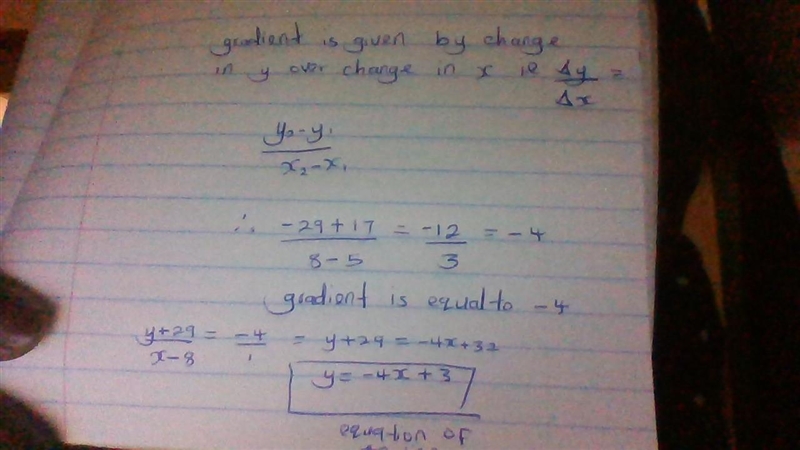 gradient is given by change
in y over change in x ie Δy/Δx =
y₂-y₁/x₂-x₁
∴ -29+17/8-5 = -12/3 = -4
gradient is equal to -4
y+29/x-8 = -4/1 = y+29 = -4x+32
y = -4x+3
equation of